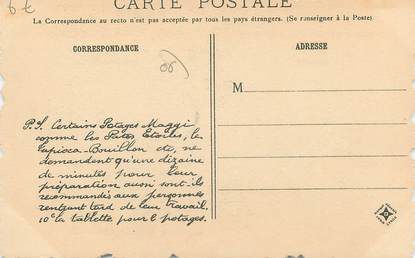 6€
CARTE POSTALE
La Correspondance au recto n'est pas acceptée par tous les pays étrangers. (Se renseigner à la Poste)
CORRESPONDANCE
ADRESSE
06
M
P.S. Certains Potages Maggi
comme les Pâtes Etoiles, le
Tapioca-Bouillon etc, ne
demandent qu'une dizaine
de minutes pour leur
préparation aussi sont-ils
recommandés aux personnes
rentrant tard de leur travail.
10c la tablette pour 2 potages.